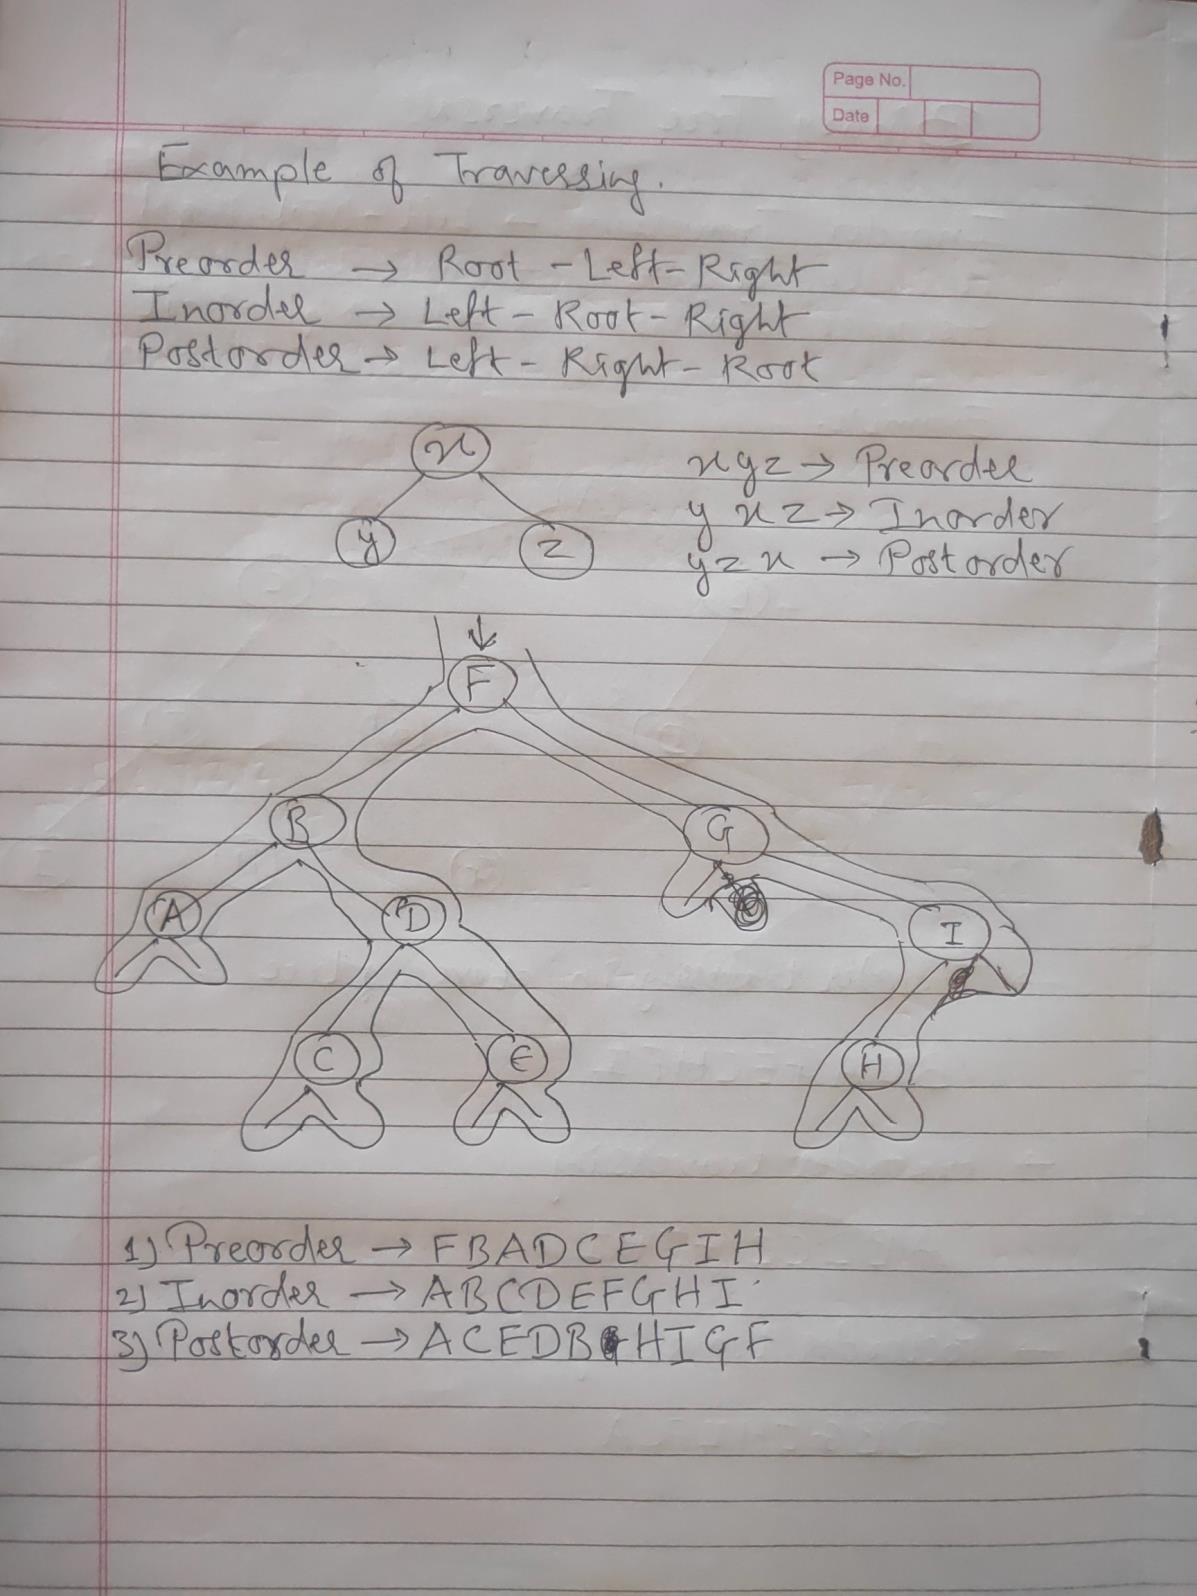 Page No.
Date
Example of Traversing.
Preorder → Root - Left - Right
Inorder → Left - Root - Right
Postorder → Left - Right - Root
x
x y z → Preorder
y x z → Inorder
y z
y z x → Postorder
↓
F
B G
A D I
C E H
1) Preorder → F B A D C E G I H
2) Inorder → A B C D E F G H I
3) Postorder → A C E D B H I G F